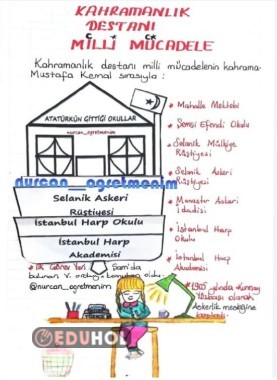 KAHRAMANLIK
DESTANI
MİLLİ MÜCADELE
Kahramanlık destanı milli mücadelenin kahrama-
Mustafa Kemal sırasıyla :
ATATÜRKÜN GİTTİĞİ OKULLAR
nurcan_ogretmenim
nurcan__ogretmenim
Selanik Askeri
Rüştiyesi
İstanbul Harp Okulu
İstanbul Harp
Akademisi
* Mahalle Mektebi
* Şemsi Efendi Okulu
* Selanik Mülkiye
Rüştiyesi
* Selanik Askeri
Rüştiyesi
* Manastır Askeri
İdadisi
* İstanbul Harp
Okulu
* İstanbul Harp
Akademisi
* İlk Görev Yeri Şam'da
bulunan
@nurcan_ogretmenim
* 1905 yılında Kurmay
Yüzbaşı olarak
Askerlik mesleğine
EDUHOL